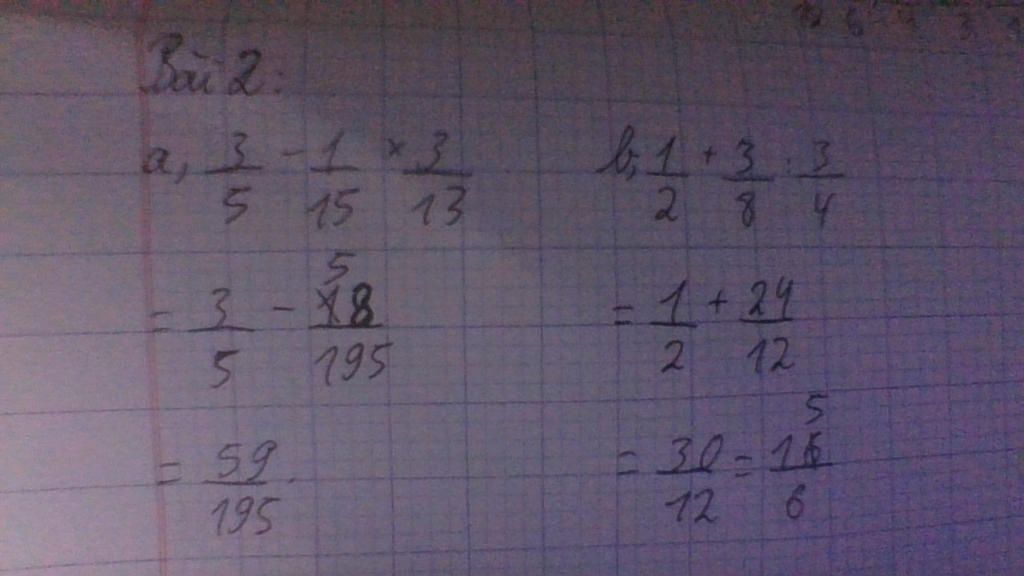 Bài 2:
a, 3/5 - 1/15 × 3/13
= 3/5 - 58/195
= 59/195.
b, 1/2 + 3/8 : 3/4
= 1/2 + 24/12
= 30/12 = 15/6